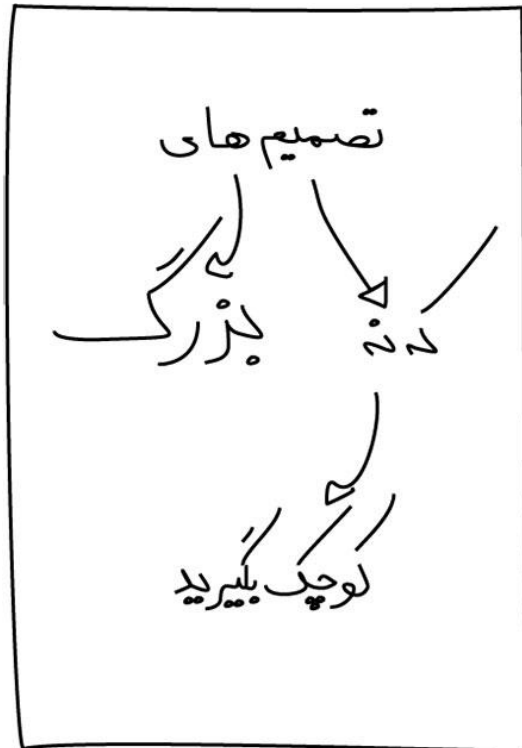 تصمیم های
بزرگ
که نه
کوچک بگیرید